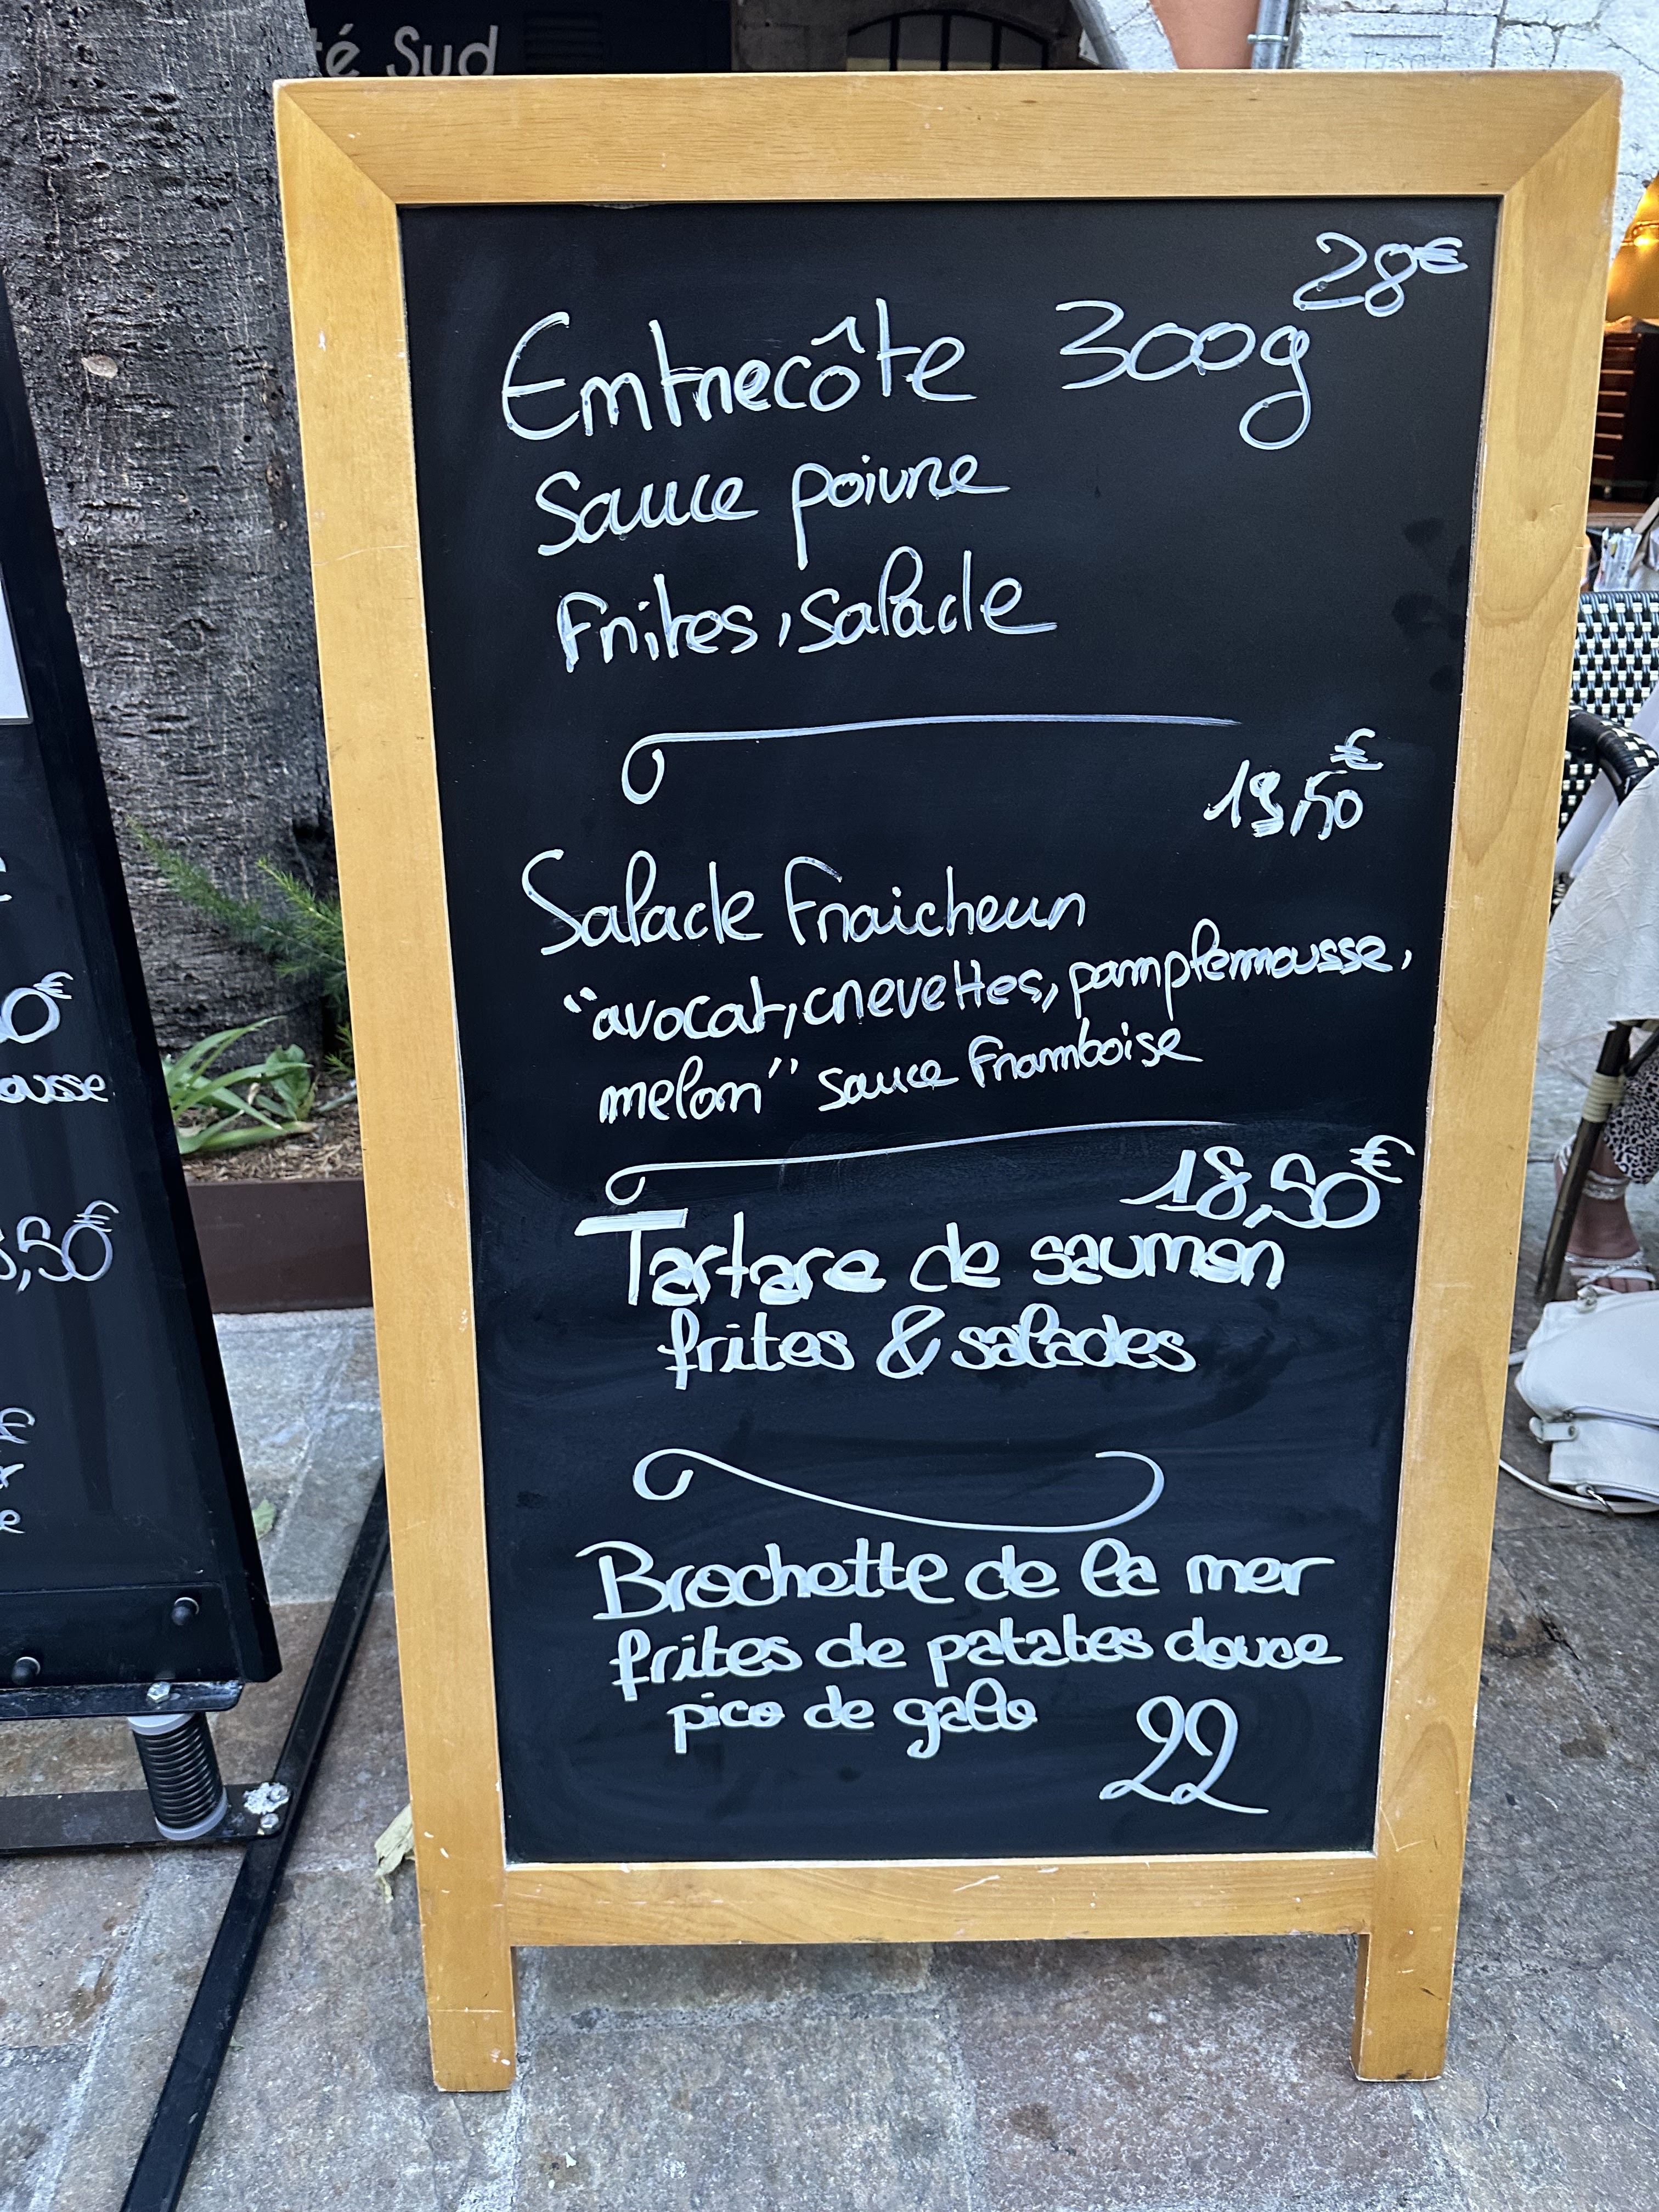 té Sud
28€
Entrecôte 300g
Sauce poivre
Frites, Salade
19,50€
Salade Fraicheur
"avocat, crevettes, pamplemousse,
melon" sauce Framboise
18,50€
Tartare de saumon
frites & salades
Brochette de la mer
frites de patates douce
pico de galo
22
0€
ousse
,50€